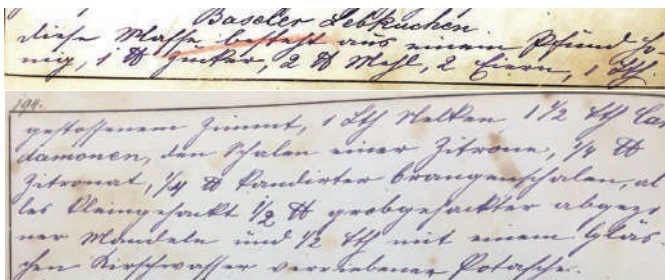 Baseler Lebkuchen.
diese Masse besteht aus einem Pfund Ho-
nig, 1 ℔ Zucker, 2 ℔ Mehl, 2 Eiern, 1 Lth.
194.
gestossenem Zimmt, 1 Lth Nelken 1 1/2 Lth Car
damonen, den Schalen einer Zitrone, 1/4 ℔
Zitronat, 1/4 ℔ kandirter Orangenschalen, al
les kleingehackt 1/2 ℔ grobgehackter abgezo
ner Mandeln und 1/2 Lth mit einem Gläs
chen Kirschwasser verriebener Potasche.